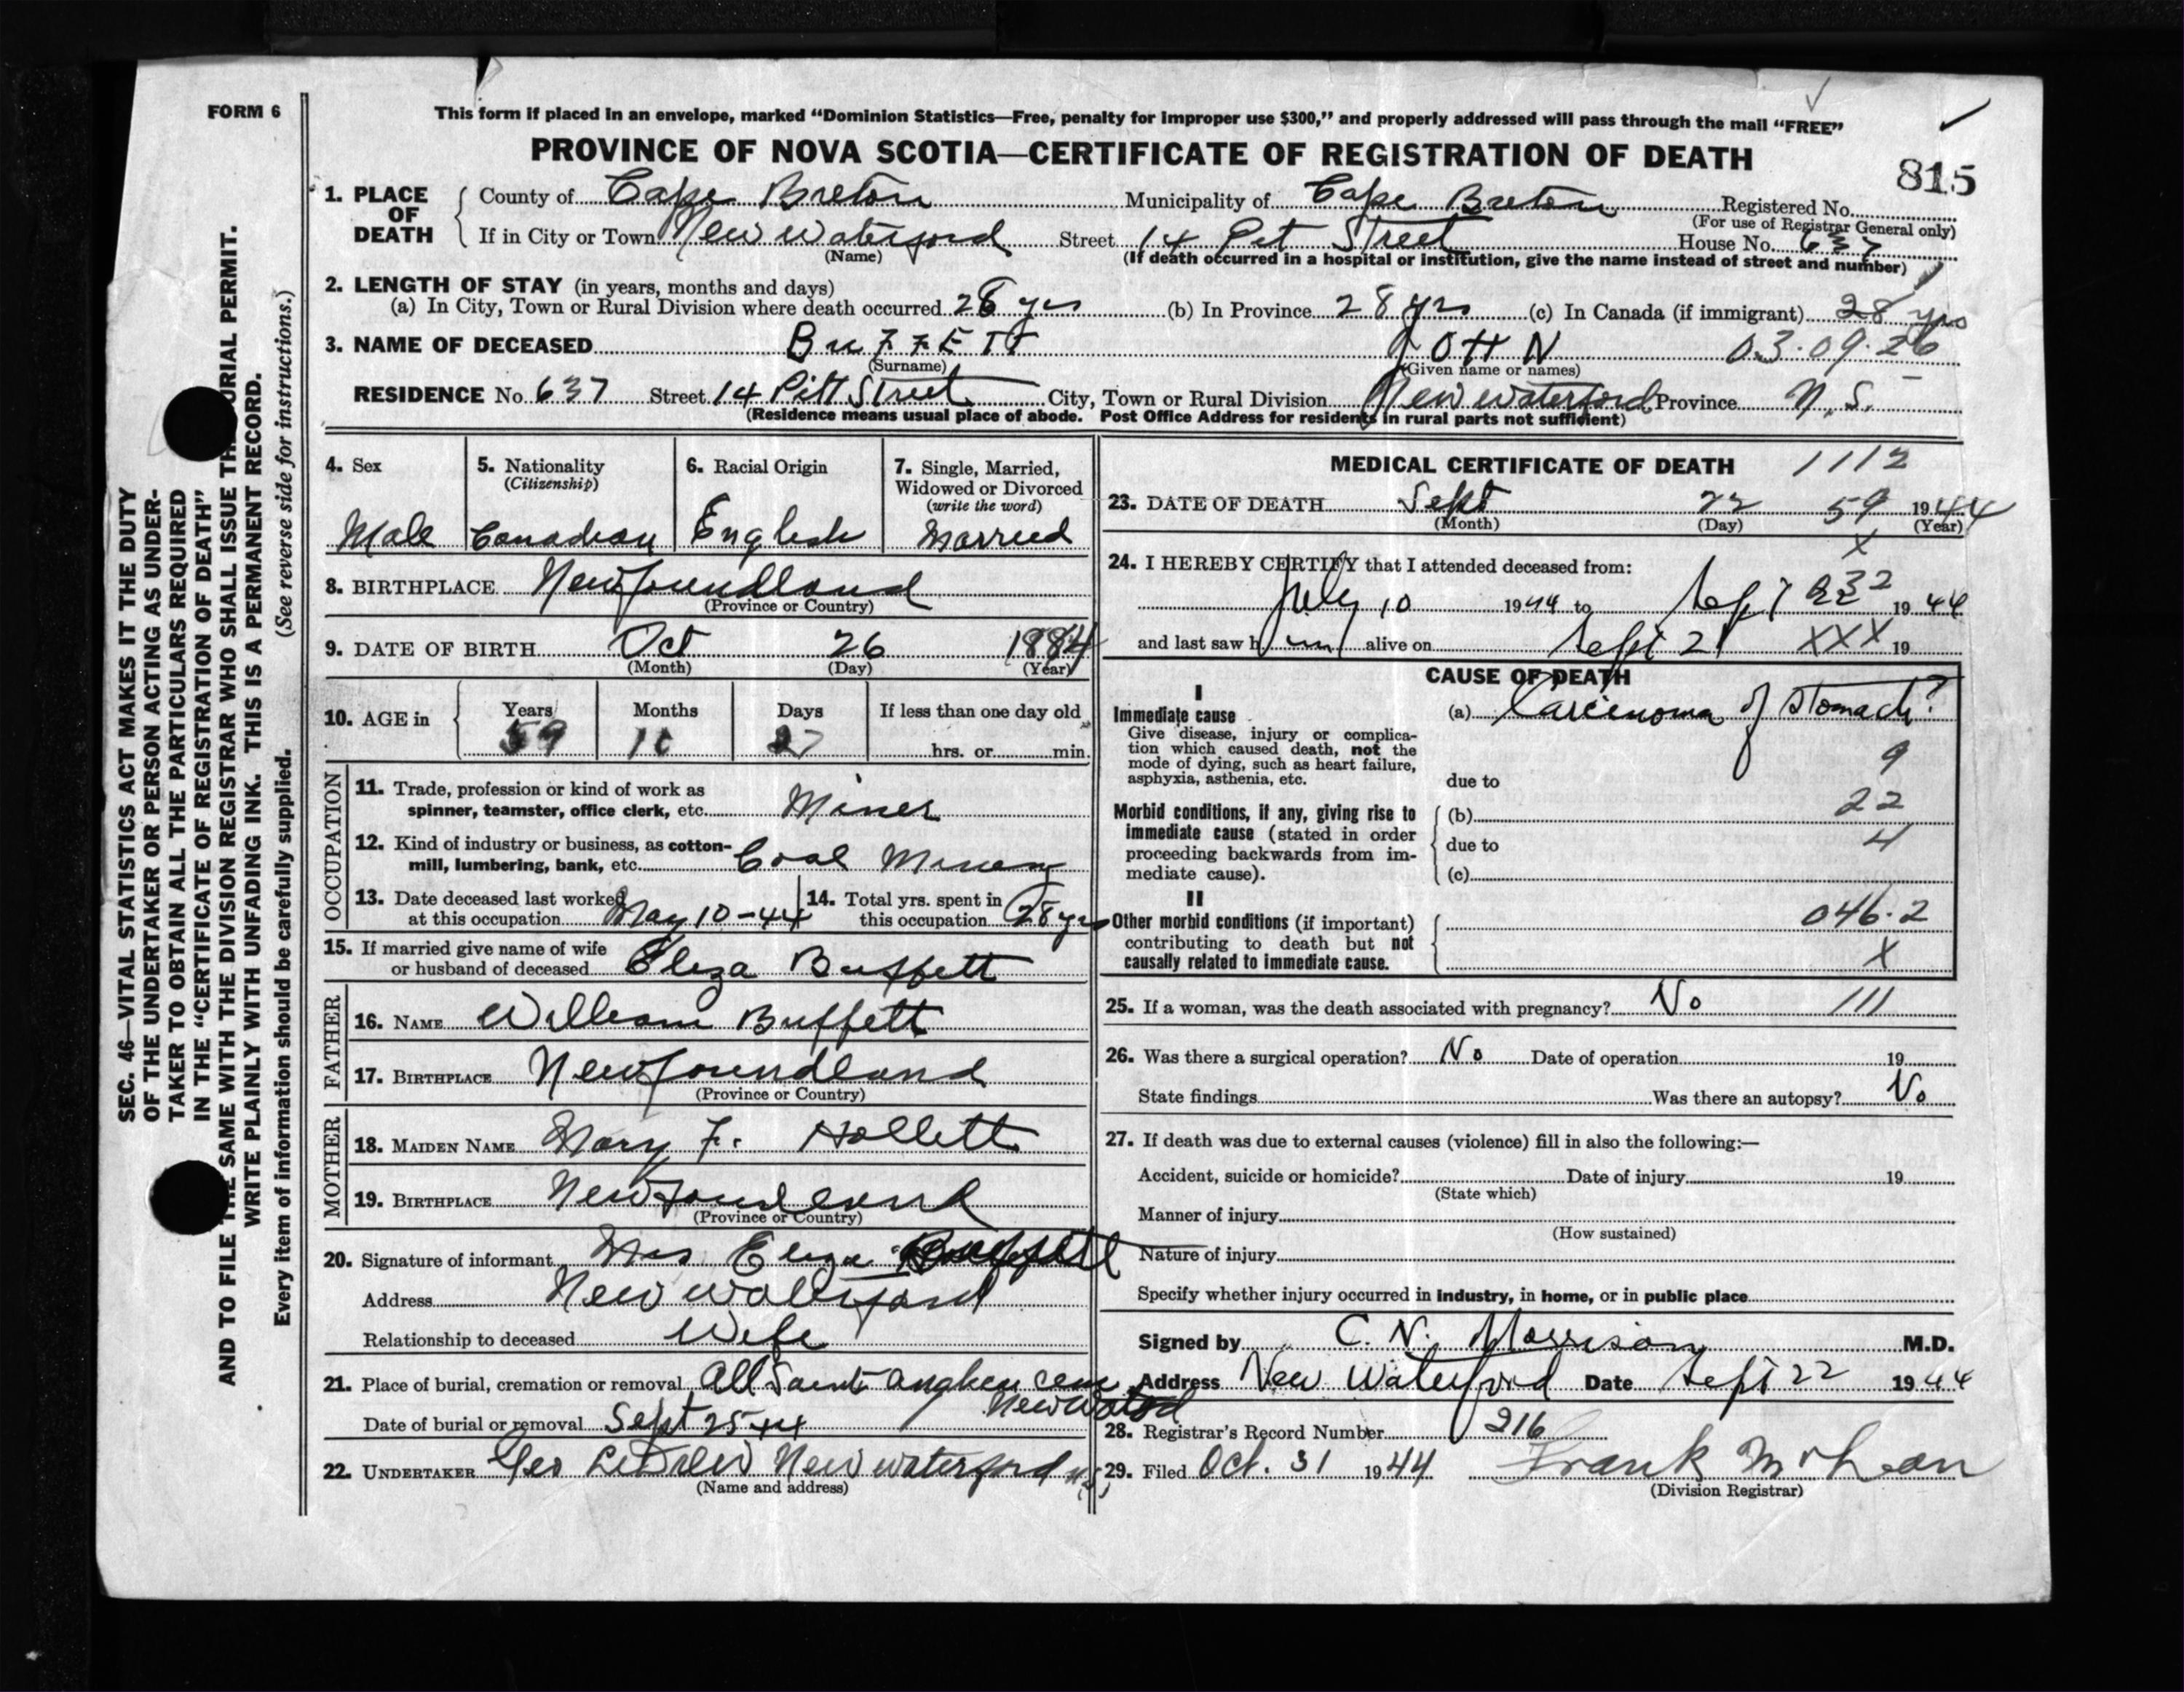 FORM 6
This form if placed in an envelope, marked "Dominion Statistics—Free, penalty for improper use $300," and properly addressed will pass through the mail "FREE"
PROVINCE OF NOVA SCOTIA—CERTIFICATE OF REGISTRATION OF DEATH
815
1. PLACE OF DEATH { County of Cape Breton Municipality of Cape Breton Registered No.
(For use of Registrar General only)
If in City or Town New Waterford Street 14 Pit Street House No. 637
(Name) (If death occurred in a hospital or institution, give the name instead of street and number)
2. LENGTH OF STAY (in years, months and days)
(a) In City, Town or Rural Division where death occurred 28 yrs (b) In Province 28 yrs (c) In Canada (if immigrant) 28 yrs
3. NAME OF DECEASED BuFFETT JOHN 03·09·26
(Surname) (Given name or names)
RESIDENCE No. 637 Street 14 Pitt Street City, Town or Rural Division New Waterford Province N.S.
(Residence means usual place of abode. Post Office Address for residents in rural parts not sufficient)
4. Sex 5. Nationality 6. Racial Origin 7. Single, Married,
(Citizenship) Widowed or Divorced
(write the word)
Male Canadian English Married
8. BIRTHPLACE Newfoundland
(Province or Country)
9. DATE OF BIRTH Oct 26 1884
(Month) (Day) (Year)
10. AGE in { Years Months Days If less than one day old
59 10 27 hrs. or min.
OCCUPATION
11. Trade, profession or kind of work as
spinner, teamster, office clerk, etc. Miner
12. Kind of industry or business, as cotton-
mill, lumbering, bank, etc. Coal Mining
13. Date deceased last worked 14. Total yrs. spent in
at this occupation May 10-44 this occupation 28 yrs
15. If married give name of wife
or husband of deceased Eliza Buffett
FATHER
16. NAME William Buffett
17. BIRTHPLACE Newfoundland
(Province or Country)
MOTHER
18. MAIDEN NAME Mary F. Hollett
19. BIRTHPLACE Newfoundland
(Province or Country)
20. Signature of informant Mrs Eliza Buffett
Address New Waterford
Relationship to deceased Wife
21. Place of burial, cremation or removal All Saints cem
Date of burial or removal Sept 25 44
22. UNDERTAKER Geo New Waterford N.S.
(Name and address)
MEDICAL CERTIFICATE OF DEATH 1112
23. DATE OF DEATH Sept 22 59 1944
(Month) (Day) (Year)
X
24. I HEREBY CERTIFY that I attended deceased from:
July 10 1944 to Sept 1944
and last saw him alive on Sept 21 XXX 19
CAUSE OF DEATH
I
Immediate cause (a) Carcinoma of Stomach?
Give disease, injury or complica-
tion which caused death, not the
mode of dying, such as heart failure, 9
asphyxia, asthenia, etc. due to
Morbid conditions, if any, giving rise to (b) 22
immediate cause (stated in order due to 4
proceeding backwards from im-
mediate cause). (c)
II
Other morbid conditions (if important) 046·2
contributing to death but not
causally related to immediate cause. X
25. If a woman, was the death associated with pregnancy? No 111
26. Was there a surgical operation? No Date of operation 19
State findings Was there an autopsy? No
27. If death was due to external causes (violence) fill in also the following:—
Accident, suicide or homicide? Date of injury 19
(State which)
Manner of injury
(How sustained)
Nature of injury
Specify whether injury occurred in industry, in home, or in public place
Signed by C. N. Morrison M.D.
Address New Waterford Date Sept 22 1944
28. Registrar's Record Number 216
29. Filed Oct. 31 1944 Frank McLean
(Division Registrar)
SEC. 46—VITAL STATISTICS ACT MAKES IT THE DUTY
OF THE UNDERTAKER OR PERSON ACTING AS UNDER-
TAKER TO OBTAIN ALL THE PARTICULARS REQUIRED
IN THE "CERTIFICATE OF REGISTRATION OF DEATH"
AND TO FILE THE SAME WITH THE DIVISION REGISTRAR WHO SHALL ISSUE THE BURIAL PERMIT.
WRITE PLAINLY WITH UNFADING INK. THIS IS A PERMANENT RECORD.
Every item of information should be carefully supplied. (See reverse side for instructions.)